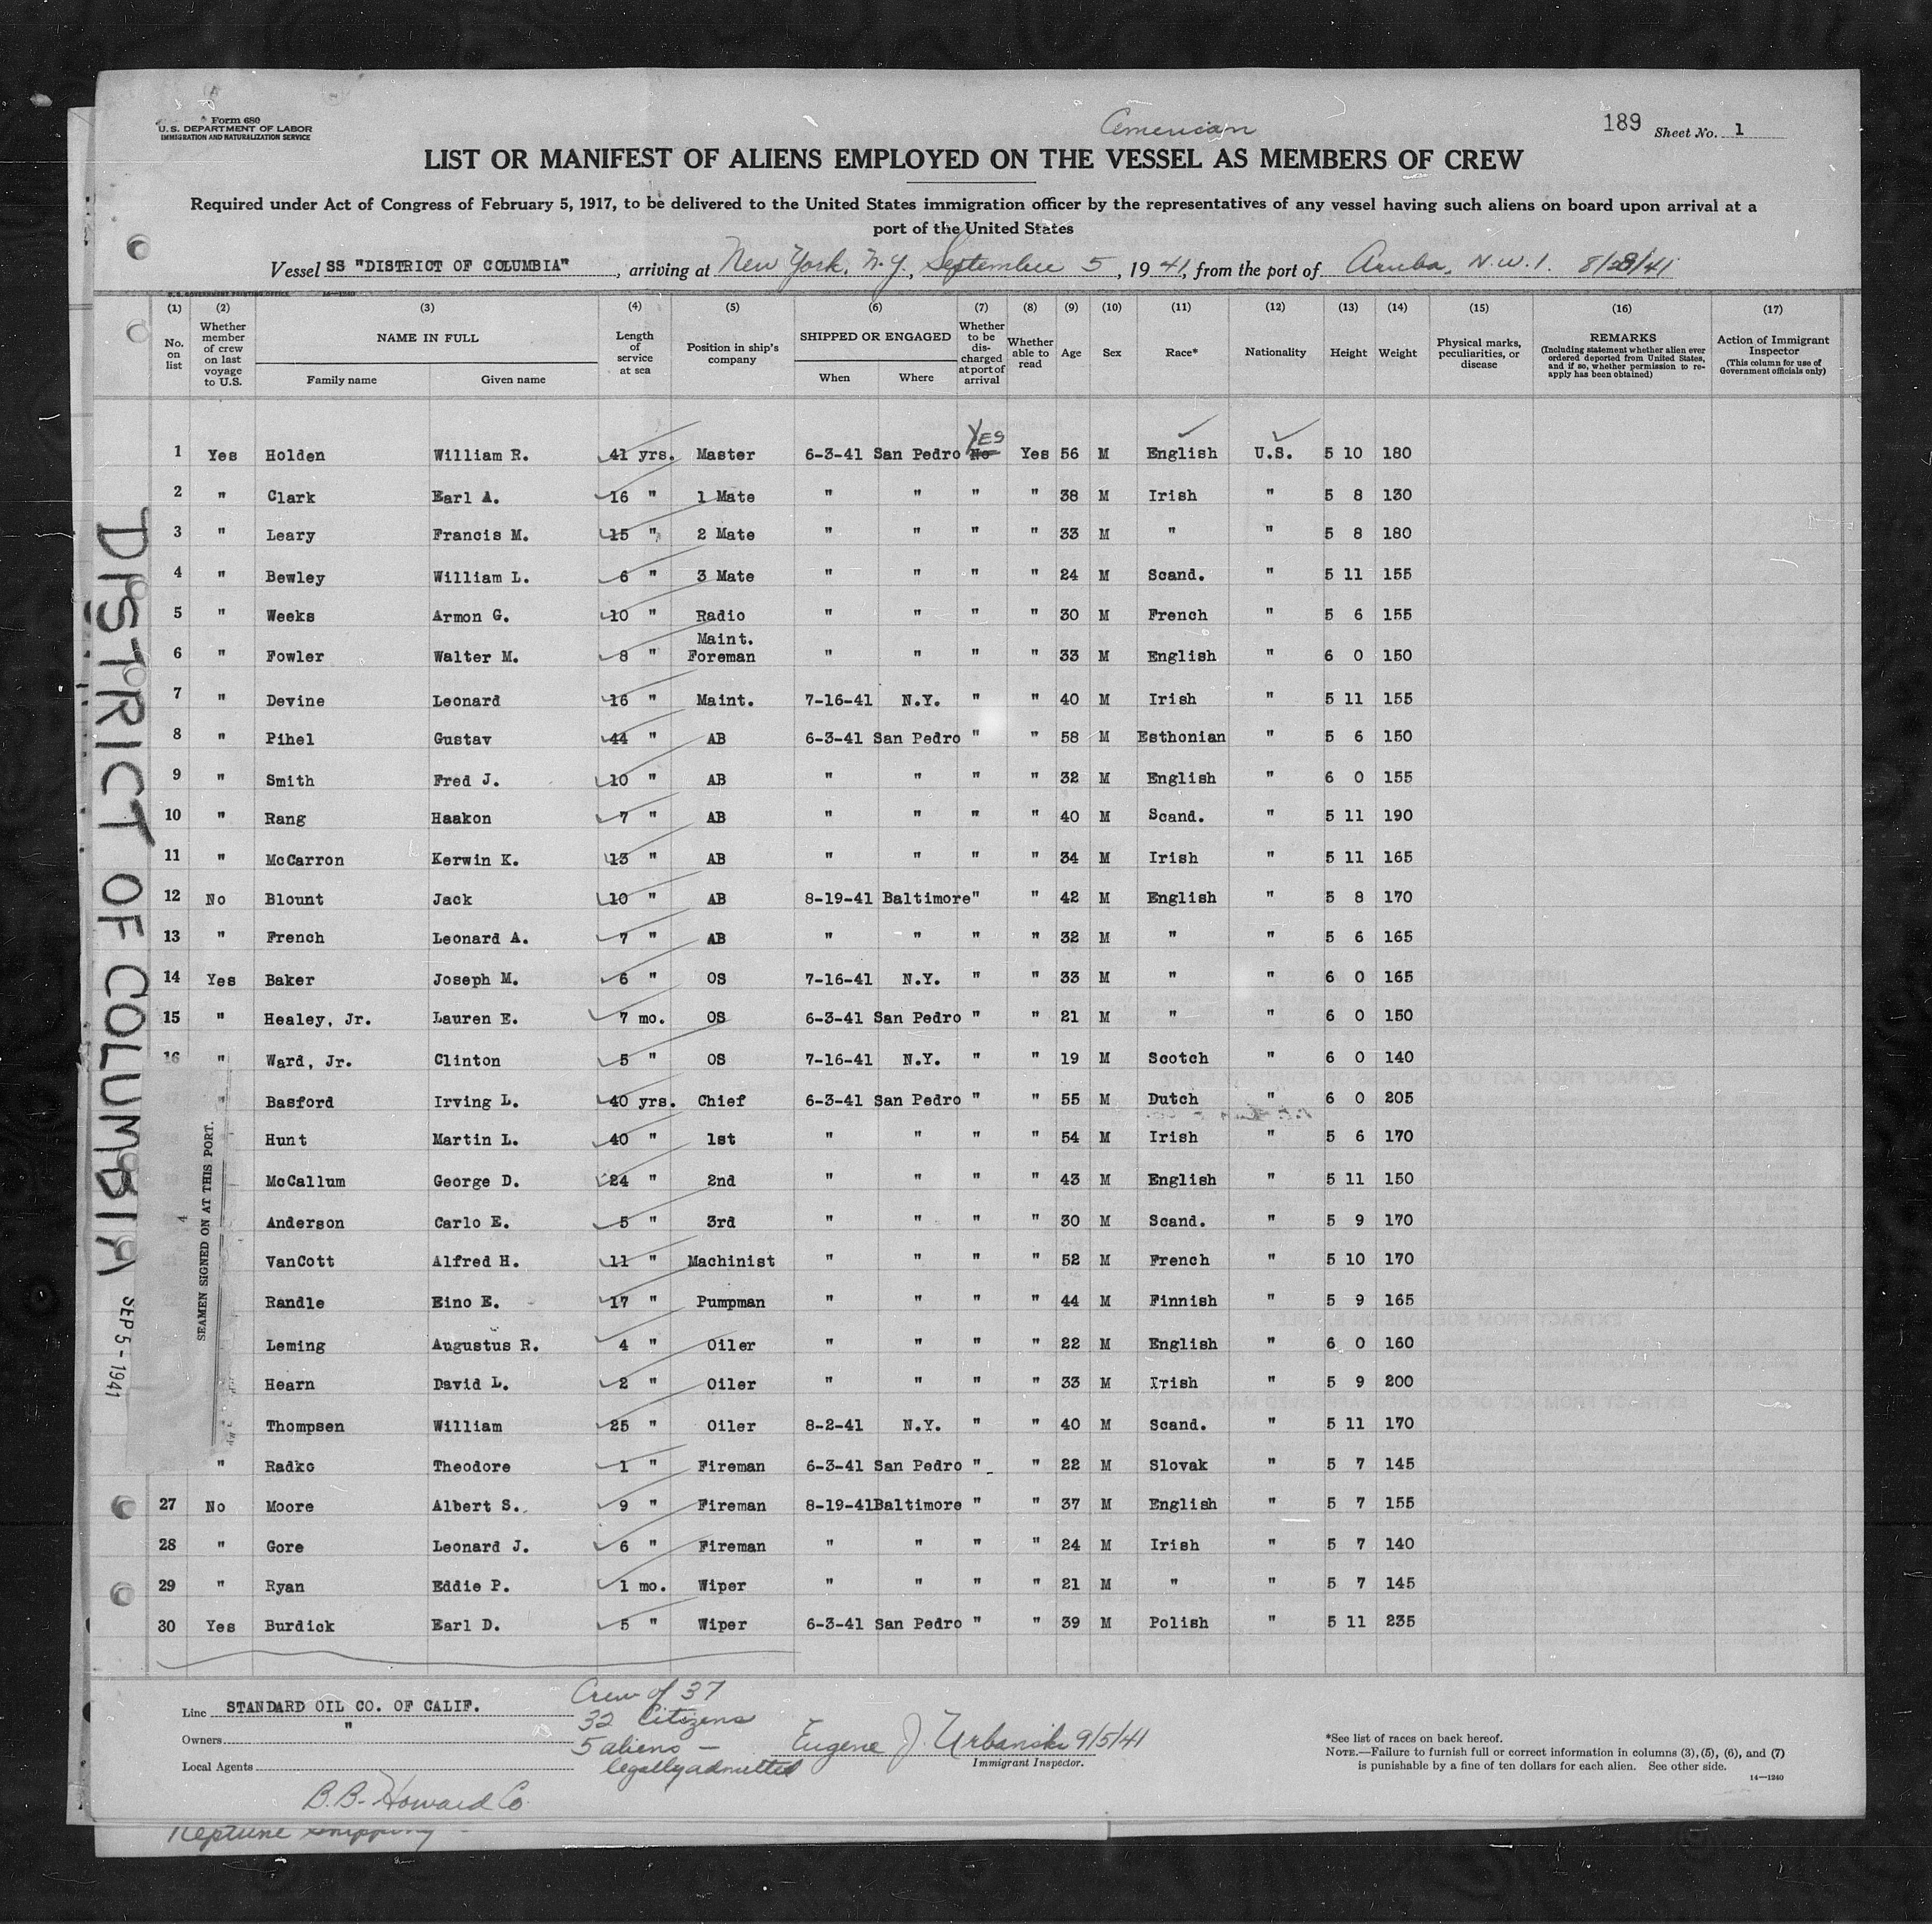 Form 680
U. S. DEPARTMENT OF LABOR
IMMIGRATION AND NATURALIZATION SERVICE
American
189 Sheet No. 1
LIST OR MANIFEST OF ALIENS EMPLOYED ON THE VESSEL AS MEMBERS OF CREW
Required under Act of Congress of February 5, 1917, to be delivered to the United States immigration officer by the representatives of any vessel having such aliens on board upon arrival at a
port of the United States
Vessel SS "DISTRICT OF COLUMBIA", arriving at New York, N.Y., September 5, 1941, from the port of Aruba, N.W.I. 8/28/41
U. S. GOVERNMENT PRINTING OFFICE 14-1240
(1) (2) (3) (4) (5) (6) (7) (8) (9) (10) (11) (12) (13) (14) (15) (16) (17)
No. on list
Whether member of crew on last voyage to U.S.
NAME IN FULL
Family name
Given name
Length of service at sea
Position in ship's company
SHIPPED OR ENGAGED
When
Where
Whether to be discharged at port of arrival
Whether able to read
Age
Sex
Race*
Nationality
Height
Weight
Physical marks, peculiarities, or disease
REMARKS
(Including statement whether alien ever ordered deported from United States, and if so, whether permission to re-apply has been obtained)
Action of Immigrant Inspector
(This column for use of Government officials only)
YES
1 Yes Holden William R. 41 yrs. Master 6-3-41 San Pedro No Yes 56 M English U.S. 5 10 180
2 " Clark Earl A. 16 " 1 Mate " " " " 38 M Irish " 5 8 130
3 " Leary Francis M. 15 " 2 Mate " " " " 33 M " " 5 8 180
4 " Bewley William L. 6 " 3 Mate " " " " 24 M Scand. " 5 11 155
5 " Weeks Armon G. 10 " Radio " " " " 30 M French " 5 6 155
6 " Fowler Walter M. 8 " Maint. Foreman " " " " 33 M English " 6 0 150
7 " Devine Leonard 16 " Maint. 7-16-41 N.Y. " " 40 M Irish " 5 11 155
8 " Pihel Gustav 44 " AB 6-3-41 San Pedro " " 58 M Esthonian " 5 6 150
9 " Smith Fred J. 10 " AB " " " " 32 M English " 6 0 155
10 " Rang Haakon 7 " AB " " " " 40 M Scand. " 5 11 190
11 " McCarron Kerwin K. 13 " AB " " " " 34 M Irish " 5 11 165
12 No Blount Jack 10 " AB 8-19-41 Baltimore " " 42 M English " 5 8 170
13 " French Leonard A. 7 " AB " " " " 32 M " " 5 6 165
14 Yes Baker Joseph M. 6 " OS 7-16-41 N.Y. " " 33 M " " 6 0 165
15 " Healey, Jr. Lauren E. 7 mo. OS 6-3-41 San Pedro " " 21 M " " 6 0 150
16 " Ward, Jr. Clinton 5 " OS 7-16-41 N.Y. " " 19 M Scotch " 6 0 140
Basford Irving L. 40 yrs. Chief 6-3-41 San Pedro " " 55 M Dutch " 6 0 205
Hunt Martin L. 40 " 1st " " " " 54 M Irish " 5 6 170
McCallum George D. 24 " 2nd " " " " 43 M English " 5 11 150
Anderson Carlo E. 5 " 3rd " " " " 30 M Scand. " 5 9 170
VanCott Alfred H. 11 " Machinist " " " " 52 M French " 5 10 170
Randle Eino E. 17 " Pumpman " " " " 44 M Finnish " 5 9 165
Leming Augustus R. 4 " Oiler " " " " 22 M English " 6 0 160
Hearn David L. 2 " Oiler " " " " 33 M Irish " 5 9 200
Thompsen William 25 " Oiler 8-2-41 N.Y. " " 40 M Scand. " 5 11 170
" Radko Theodore 1 " Fireman 6-3-41 San Pedro " " 22 M Slovak " 5 7 145
27 No Moore Albert S. 9 " Fireman 8-19-41 Baltimore " " 37 M English " 5 7 155
28 " Gore Leonard J. 6 " Fireman " " " " 24 M Irish " 5 7 140
29 " Ryan Eddie P. 1 mo. Wiper " " " " 21 M " " 5 7 145
30 Yes Burdick Earl D. 5 " Wiper 6-3-41 San Pedro " " 39 M Polish " 5 11 235
DISTRICT OF COLUMBIA SEP 5 - 1941
4
SEAMEN SIGNED ON AT THIS PORT.
Line STANDARD OIL CO. OF CALIF.
Owners "
Local Agents
B.B. Howard Co
Crew of 37
32 Citizens
5 aliens -
legally admitted
Eugene J. Urbanski 9/5/41
Immigrant Inspector.
*See list of races on back hereof.
NOTE.—Failure to furnish full or correct information in columns (3), (5), (6), and (7)
is punishable by a fine of ten dollars for each alien. See other side.
14—1240
Neptune Shipping